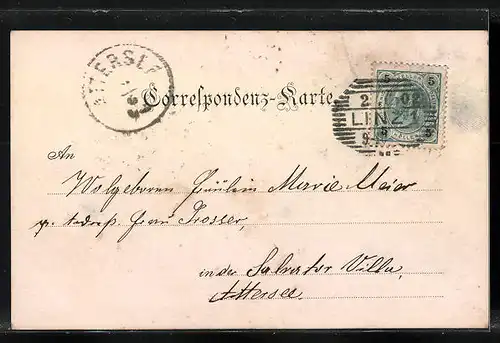 ATTERSEE
Correspondenz-Karte
5 5
LINZ
5 5
An
Wolgeboren Fräulein Marie Maier
p. Adreß. Frau Prosser,
in der Salvator Villa,
Attersee.